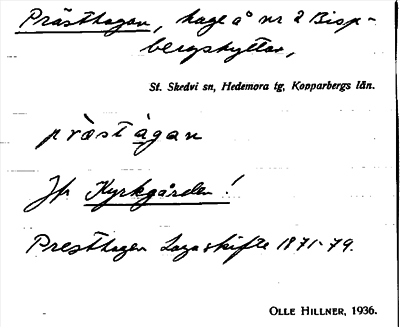 Prästhagan, hage å nr 2 Bisp-
bergshyttan,
St. Skedvi sn, Hedemora tg, Kopparbergs län.
præ̀stágan
Jfr Kyrkgården!
Presthagen Laga skifte 1871-79.
OLLE HILLNER, 1936.